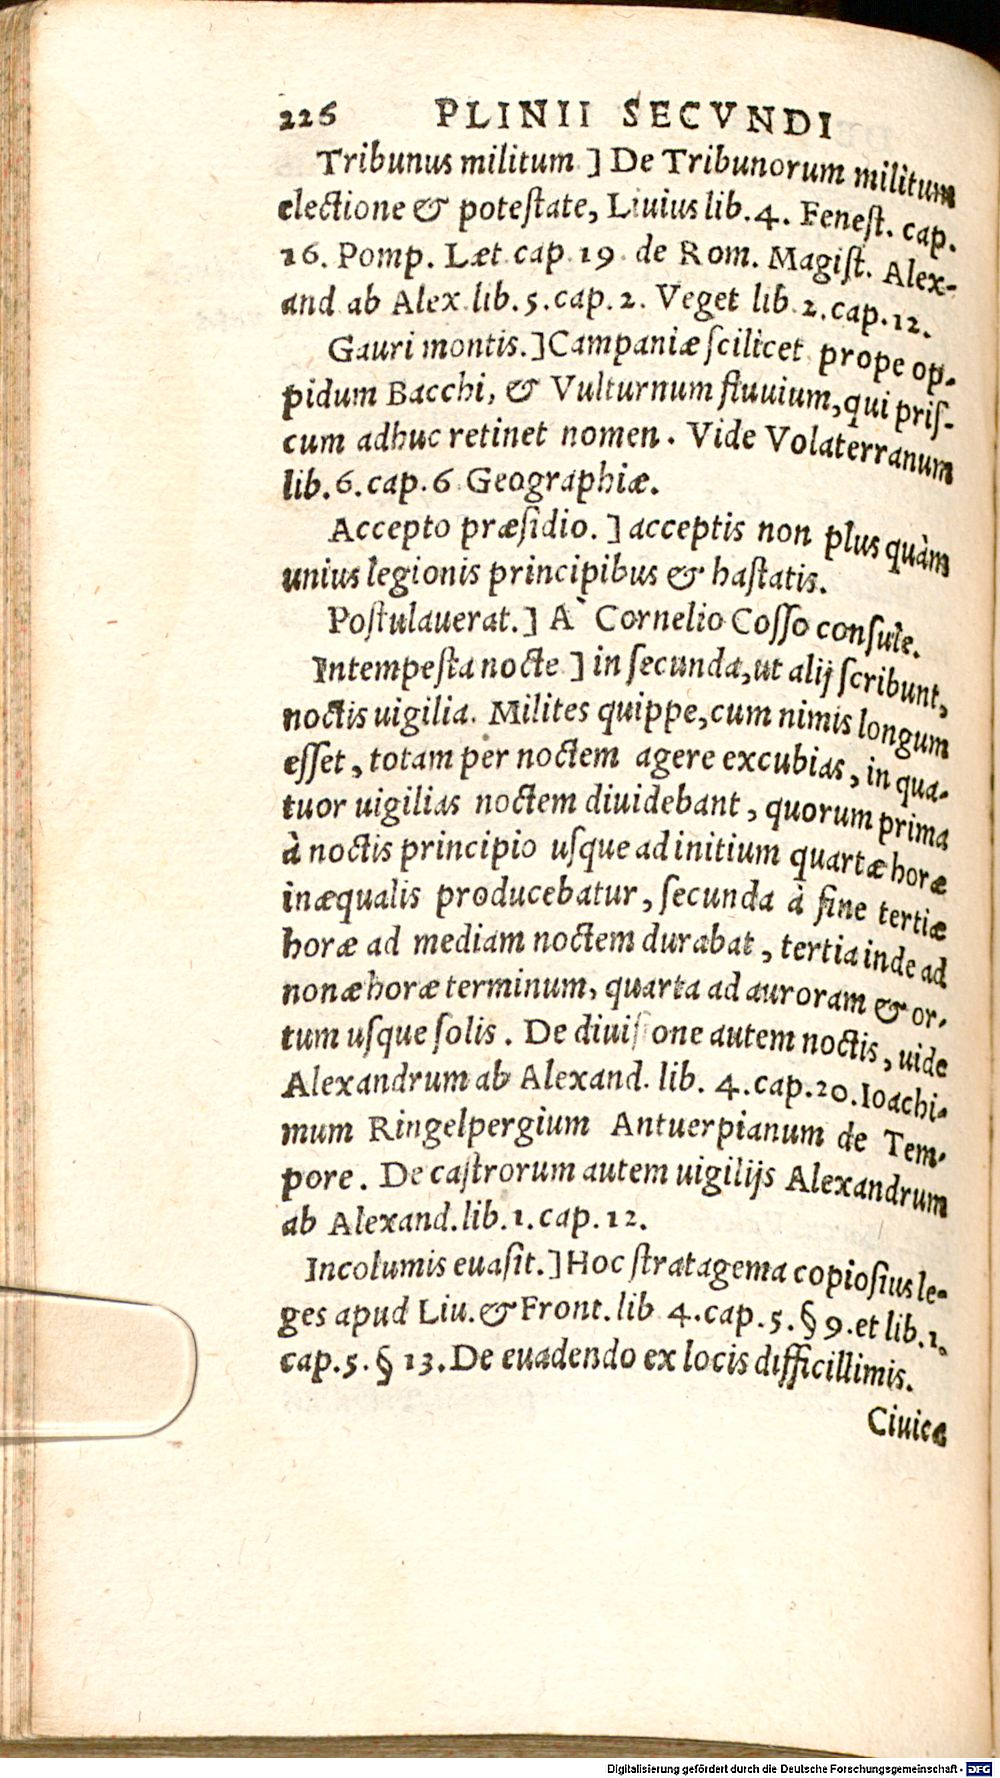 226 PLINII SECVNDI
Tribunus militum ] De Tribunorum militum
electione & potestate, Liuius lib. 4. Fenest. cap.
16. Pomp. Læt cap 19 de Rom. Magist. Alex-
and ab Alex lib. 5. cap. 2. Veget lib 2. cap. 12.
Gauri montis.] Campaniæ scilicet prope op-
pidum Bacchi, & Vulturnum fluuium, qui pris-
cum adhuc retinet nomen. Vide Volaterranum
lib. 6. cap. 6 Geographiæ.
Accepto præsidio. ] acceptis non plus quàm
unius legionis principibus & hastatis.
Postulauerat.] A` Cornelio Cosso consule.
Intempesta nocte ] in secunda, ut alij scribunt,
noctis uigilia. Milites quippe, cum nimis longum
esset, totam per noctem agere excubias, in qua-
tuor uigilias noctem diuidebant, quorum prima
à noctis principio usque ad initium quartæ horæ
inæqualis producebatur, secunda à fine tertiæ
horæ ad mediam noctem durabat, tertia inde ad
nonæ horæ terminum, quarta ad auroram & or-
tum usque solis. De diuisione autem noctis, uide
Alexandrum ab Alexand. lib. 4. cap. 20. Ioachi-
mum Ringelpergium Antuerpianum de Tem-
pore. De castrorum autem uigilijs Alexandrum
ab Alexand. lib. 1. cap. 12.
Incolumis euasit.] Hoc stratagema copiosius le-
ges apud Liu. & Front. lib 4. cap. 5. § 9. et lib. 1.
cap. 5. § 13. De euadendo ex locis difficillimis.
Ciuica
Digitalisierung gefördert durch die Deutsche Forschungsgemeinschaft - DFG